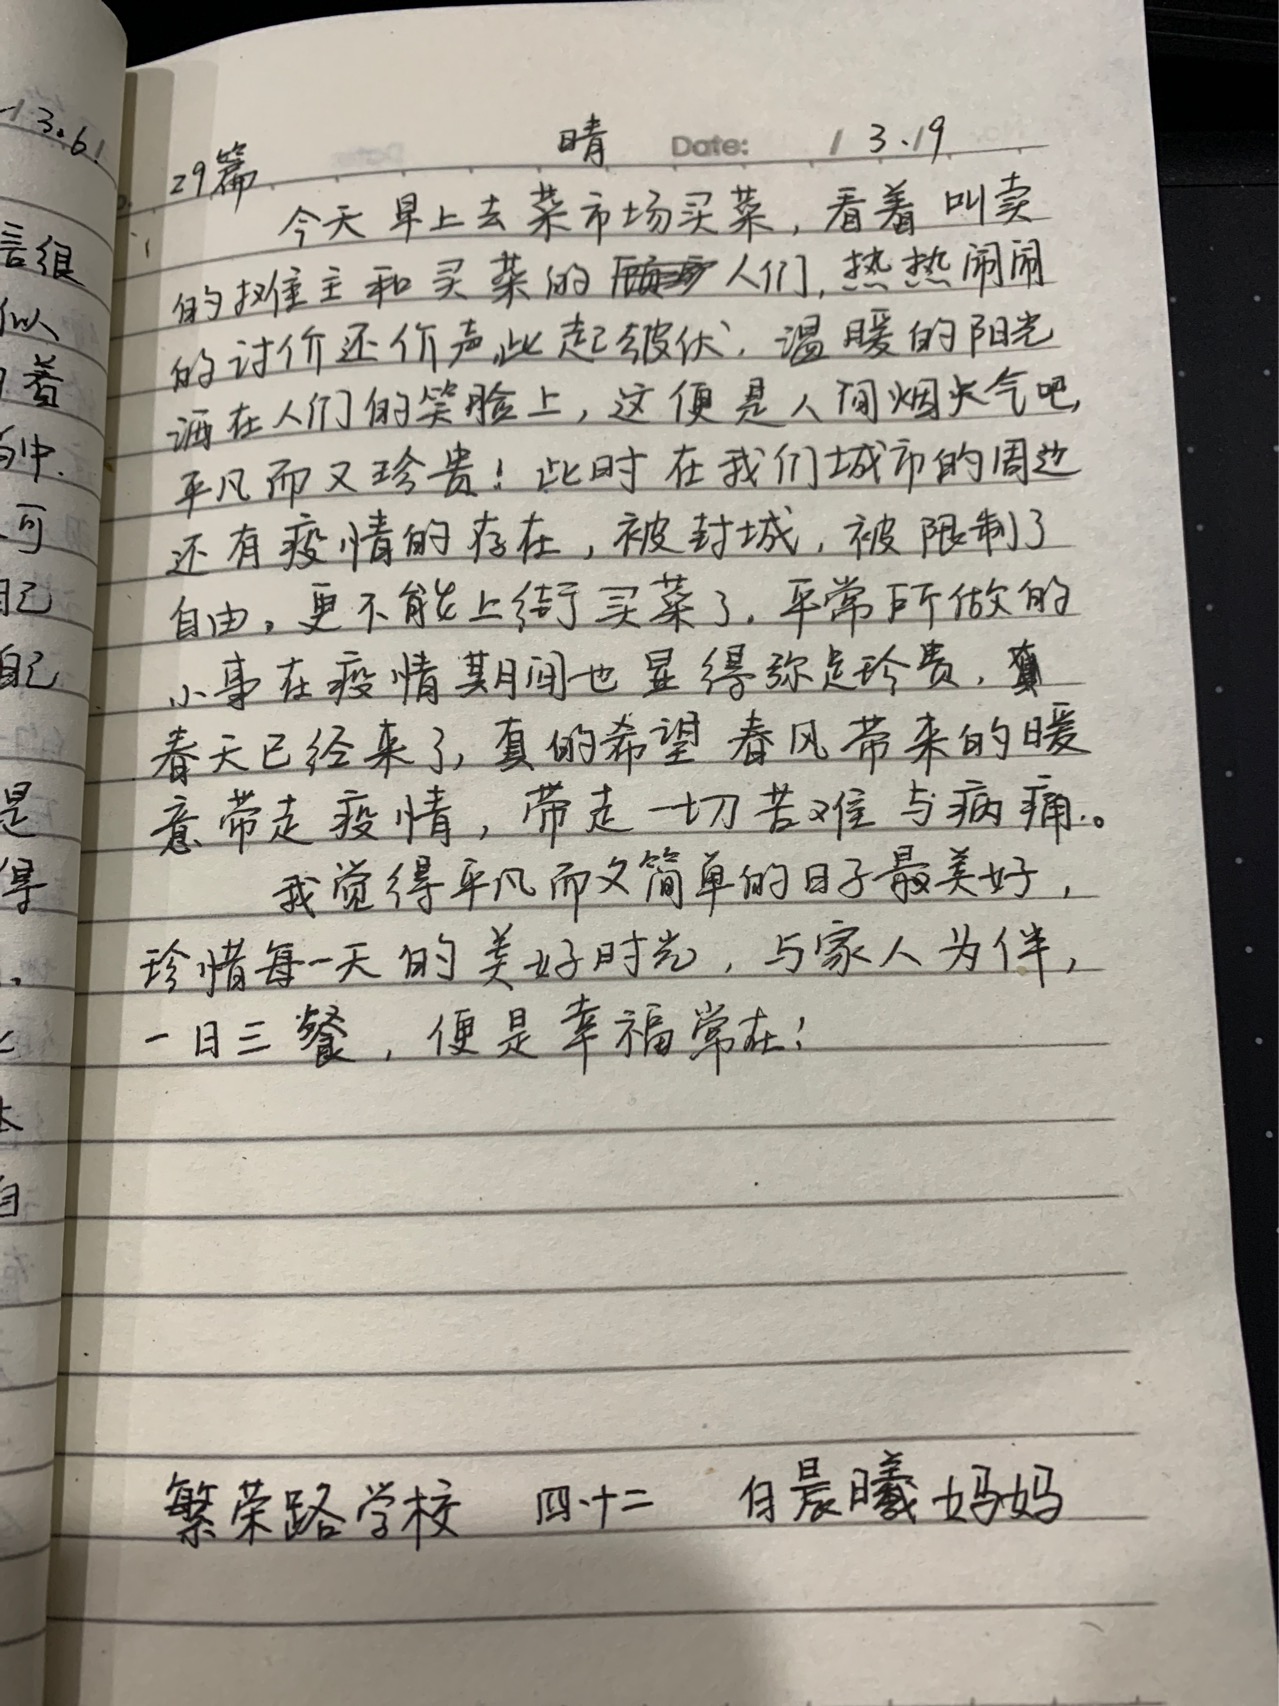 3.6.
言很
以
着
中.
可
自己
自己
是
得
本
自
29篇 晴 Date: 1 3.19
今天早上去菜市场买菜，看着叫卖
的摊主和买菜的人们，热热闹闹
的讨价还价声此起彼伏．温暖的阳光
洒在人们的笑脸上，这便是人间烟火气吧，
平凡而又珍贵！此时在我们城市的周边
还有疫情的存在，被封城，被限制了
自由。更不能上街买菜了．平常所做的
小事在疫情期间也显得弥足珍贵．
春天已经来了，真的希望春风带来的暖
意带走疫情，带走一切苦难与病痛．。
我觉得平凡而又简单的日子最美好，
珍惜每一天的美好时光，与家人为伴，
一日三餐，便是幸福常在！
繁荣路学校 四.十二 白晨曦妈妈